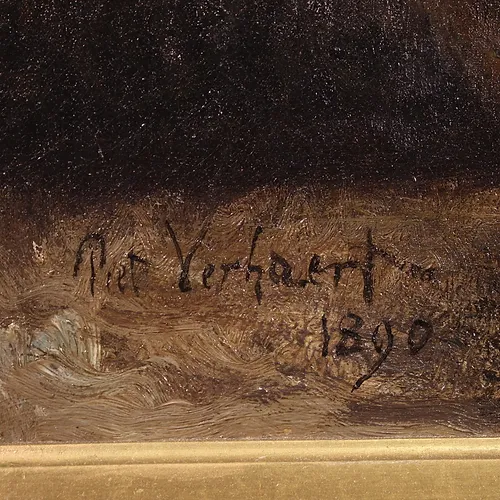 Piet Verhaert
1890